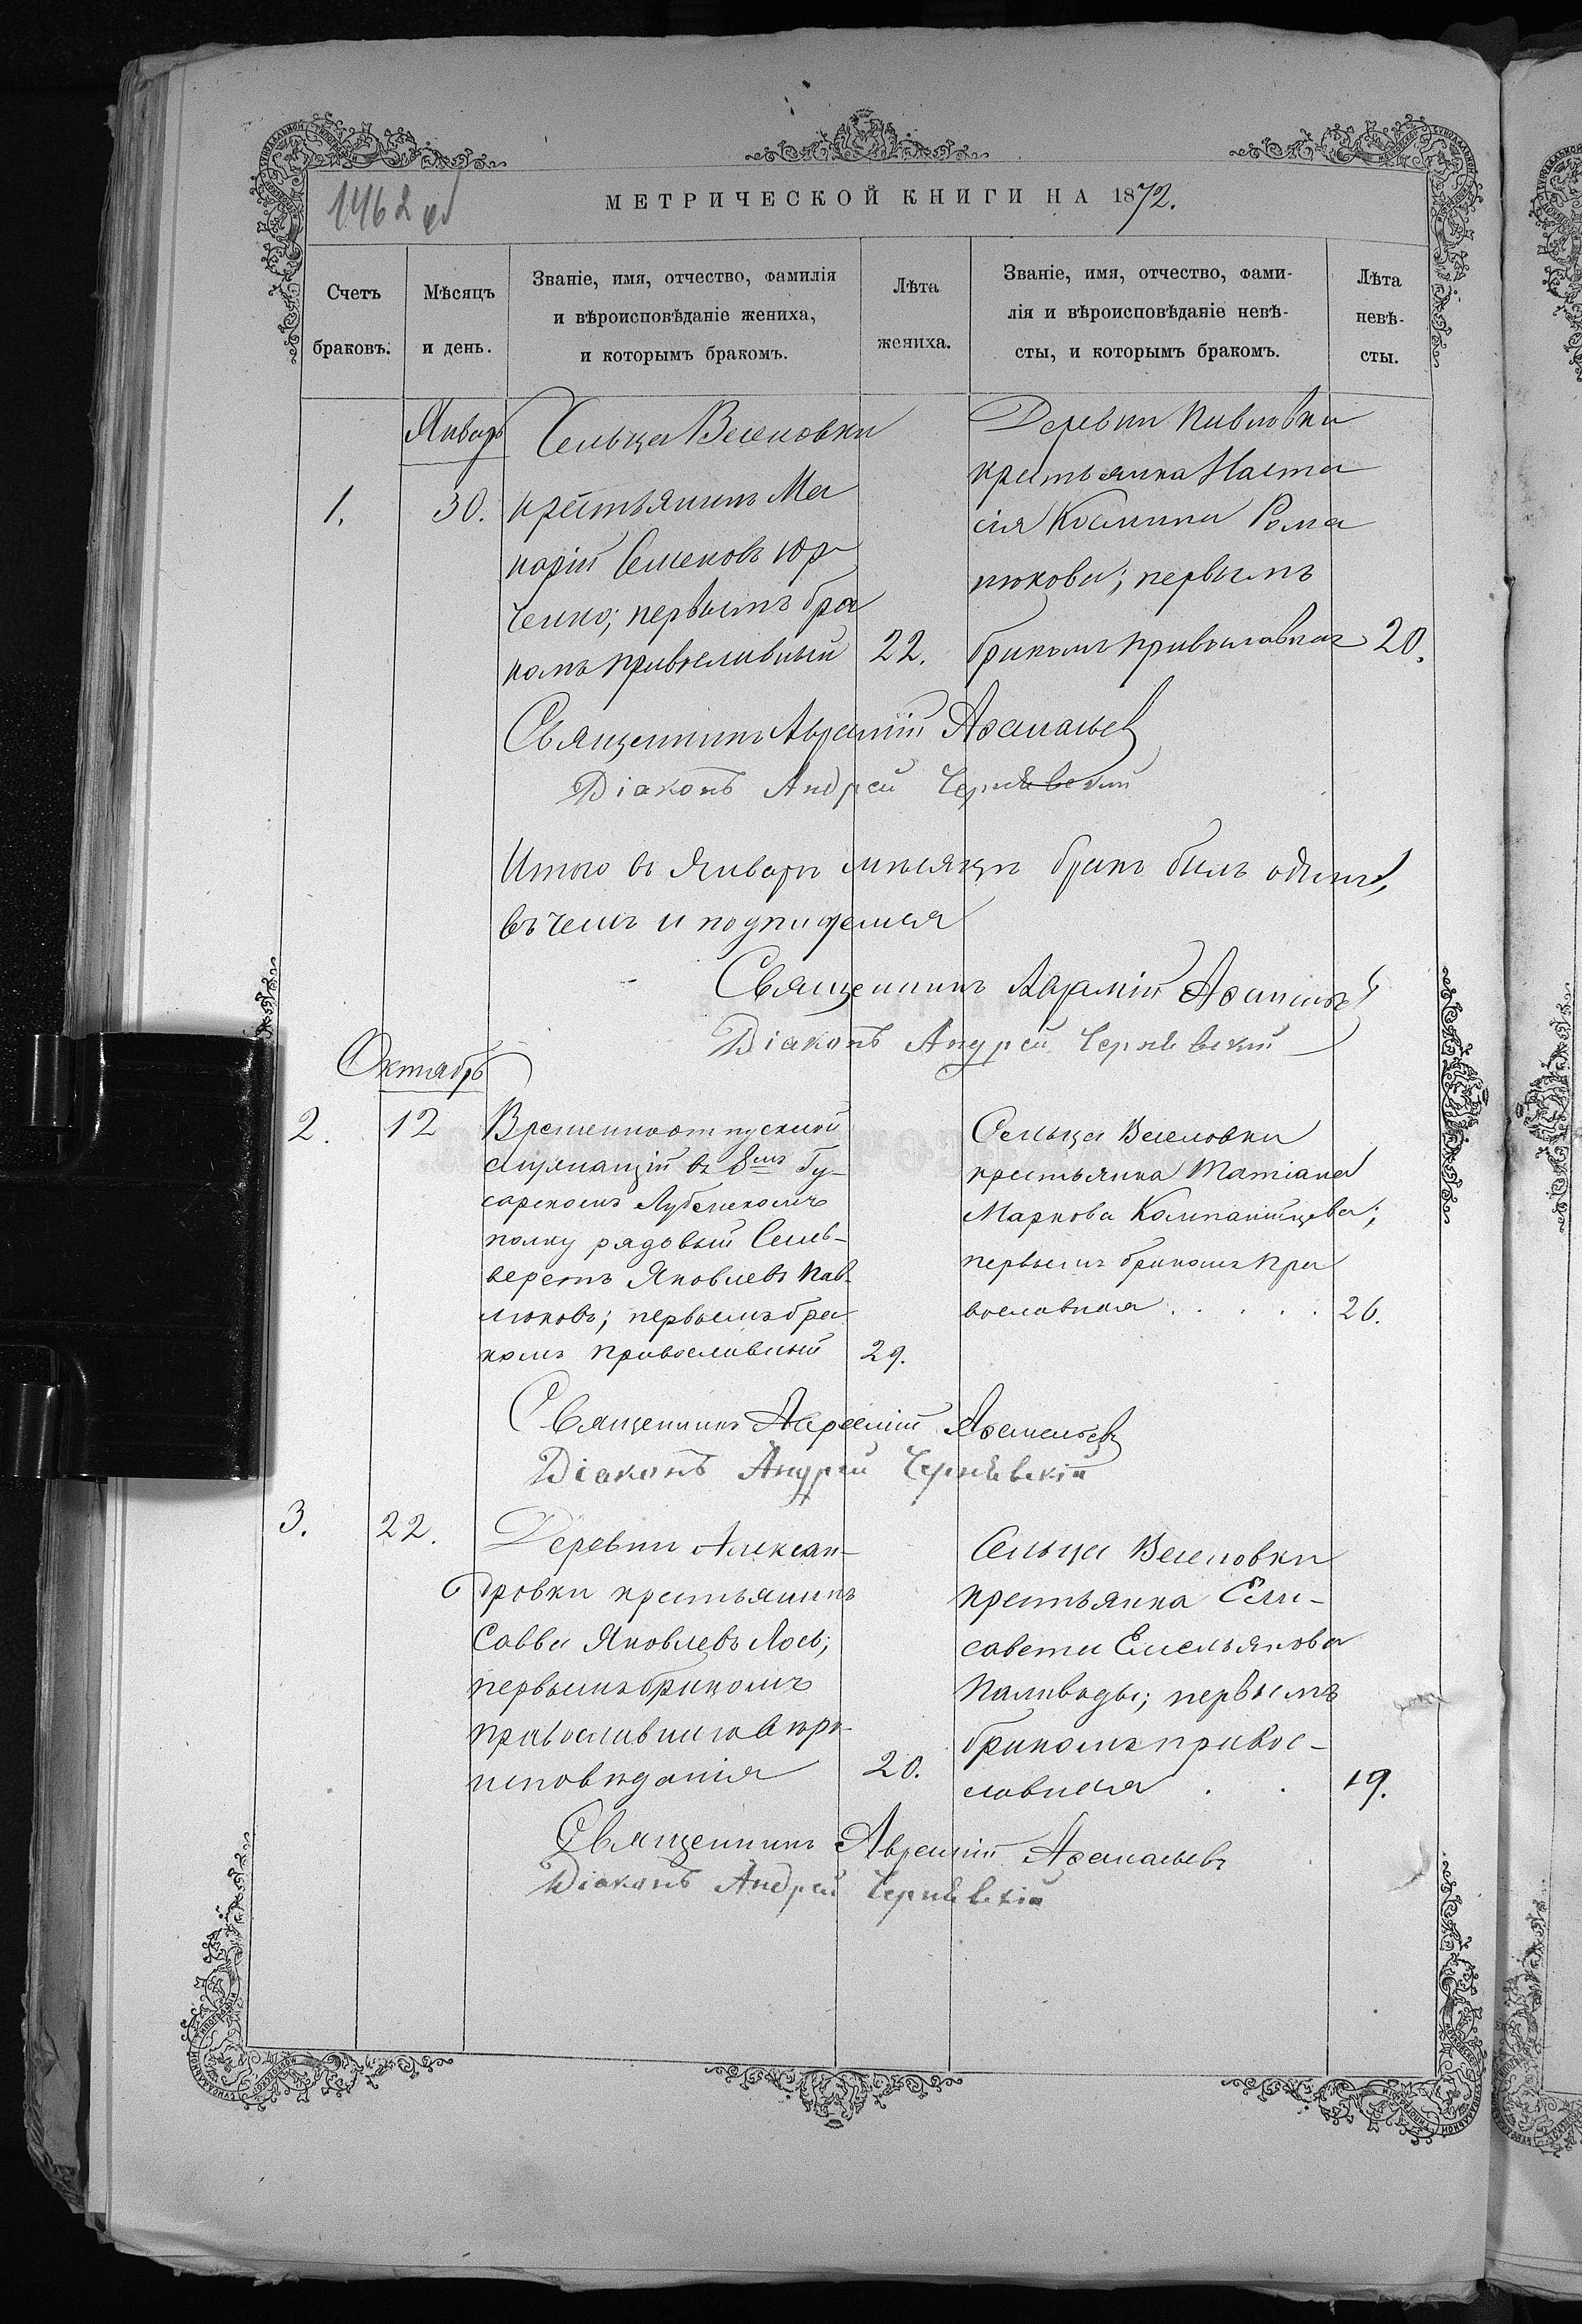 1462 об
МЕТРИЧЕСКОЙ КНИГИ НА 1872.
Счетъ браковъ.
Мѣсяцъ и день.
Званіе, имя, отчество, фамилія
и вѣроисповѣданіе жениха,
и которымъ бракомъ.
Лѣта жениха.
Званіе, имя, отчество, фами-
лія и вѣроисповѣданіе невѣ-
сты, и которымъ бракомъ.
Лѣта невѣ-
сты.
Январь
1.
30.
Сельца Веселовки
крестьянинъ Ма
карій Семеновъ Юр
ченко; первымъ бра
комъ православный
22.
Деревни Павловки
крестьянка Наста
сія Косьмина Рома
нюкова; первымъ
бракомъ православная
20.
Священникъ Аврамій Аѳанасьев
Діаконъ Андрей Чернѣвскій
Итого въ Январѣ мѣсяцѣ бракъ былъ одинъ,
въ чемъ и подпишемся
Священникъ Аврамій Аѳанасьев
Діаконъ Андрей Чернѣвскій
Октябрь
2.
12
Временноотпускной
служащій въ 8мъ Гу-
сарскомъ Лубенскомъ
полку рядовый Сель-
верстъ Яковлевъ Пав-
люковъ; первымъ бра
комъ православный
29.
Сельца Веселовки
крестьянка Татіана
Маркова Компанійцева;
первымъ бракомъ пра
вославная . . . . .
26.
Священникъ Аврамій Аѳанасьевъ
Діаконъ Андрей Чернѣвскій
3.
22.
Деревни Алексан-
дровки крестьянинъ
Савва Яковлевъ Лось;
первымъ бракомъ
православнаго вѣро-
исповѣданія
20.
Сельца Веселовки
крестьянка Ели-
савета Емельянова
Паливоды; первымъ
бракомъ правос-
лавная . .
19.
Священникъ Аврамій Аѳанасьевъ
Діаконъ Андрей Чернѣвскій